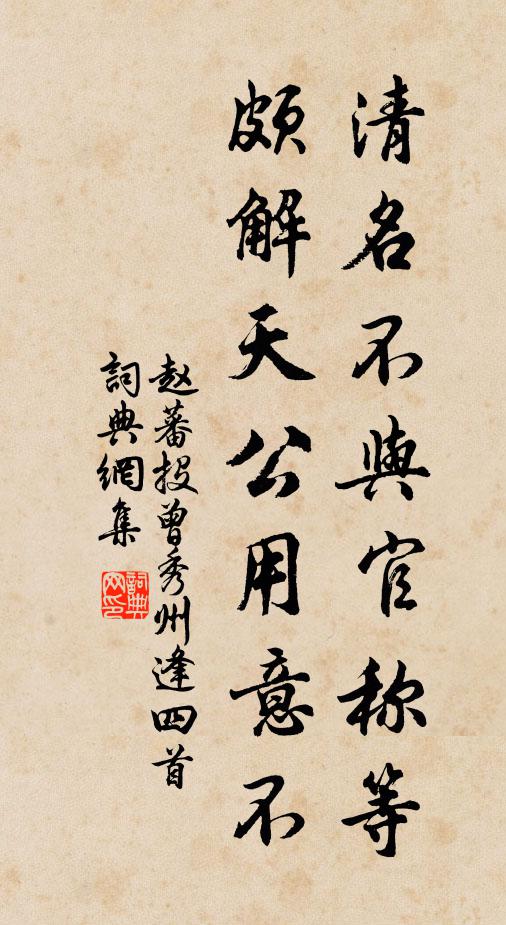 清名不與官称等
頗解天公用意不
赵蕃投曾秀州逢四首
詞典網集
詞典网印